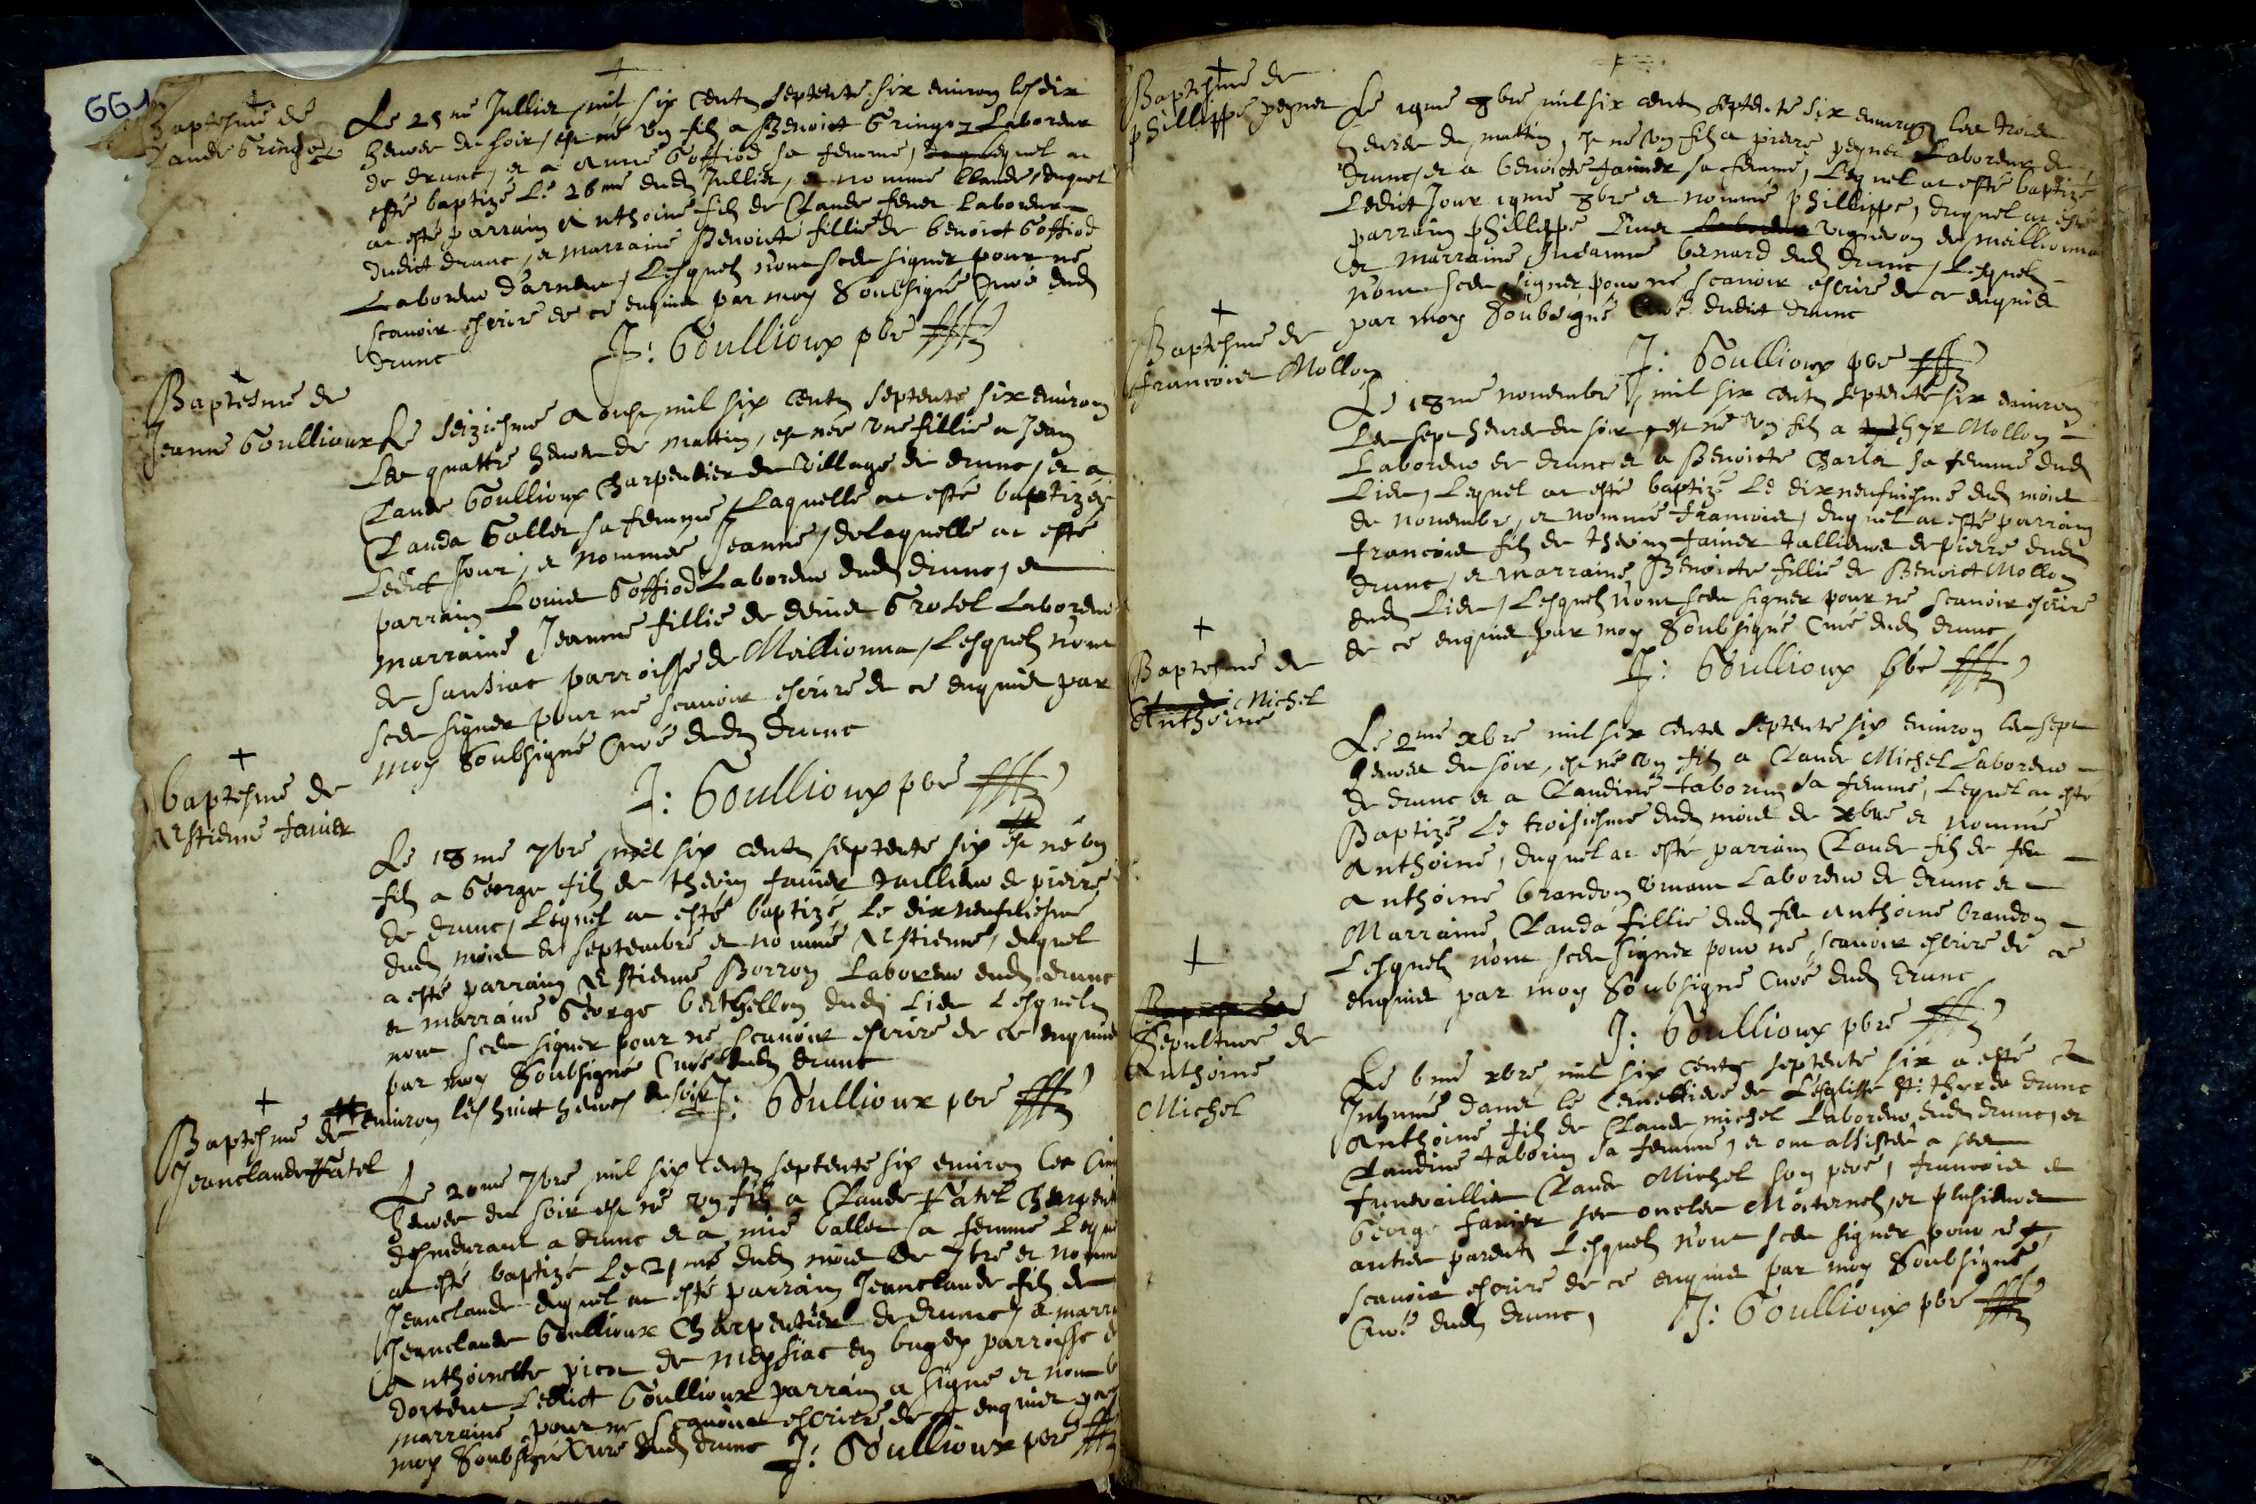 661
Baptesme de
Claude Gringoz
Le 25me Jullier mil six centz septente six enuiron les dix
heures du soir, est né un filz a Benoict Gringoz Laboreur
de drunc, et a Anne Goffiod sa femme, lequel at
esté baptizé Le 26me dudz Jullier, et nomme Claude, duquel
at esté parrain Anthoine filz de Claude feuer Laboreur
dudict drunc, et marraine Benoicte fillie de benoict Goffiod
Laboreur d'arnem, Lesquelz nont sceu signer pour ne
scauoir escrire de ce enquis par moy Soubsigné Curé dudz
drunc
J: Goullioux pbre
Baptesme de
Jeanne Goullioux
Le seiziesme Aoust mil six centz septente six enuiron
Les quattre heures de mattin, est née une fillie a Jean
Claude Goullioux Charpentier du Village de drunc, et a
Clauda Gallet sa femme, Laquelle at esté baptizée
Ledict Jour, et nommee Jeanne, de laquelle at esté
parrain Louis Goffiod Laboreur dudz drunc, et
marraine Jeanne fillie de denis Grosel Laboreur
de Sansiac parroisse de Meillionna, Lesquelz nont
sceu signer pour ne scauoir escrire de ce enquis par
moy Soubsigné Curé dudz drunc
J: Goullioux pbre
baptesme de
Estienne fauier
Le 18me 7bre mil six centz septente six est né un
filz a George filz de theuin fauier tailleur de pierre
de drunc, Lequel at esté baptizé Le dixneufuiesme
dudz mois de septembre et nommé Estienne, duquel
a esté parrain Estienne Borron Laboreur dudz drunc
et marraine George berthellon dudz Lieu Lesquelz
nont sceu signer pour ne scauoir escrire de ce enquis
par moy Soubsigné Curé dudz drunc
enuiron les huict heures du soir J: Goullioux pbre
Baptesme de
Jeanclaude Fatel
Le 20me 7bre mil six centz septente six enuiron les
heures du soir est né un filz a Claude Fatel Charpent
desmeurant a drunc et a mie ballet sa femme Leque
at esté baptizé Le 21me dudz mois de 7bre et nomme
Jeanclaude duquel at esté parrain Jeanclaude filz de
Jeanclaude Goullioux Charpentier de drunc, et marr
Anthoinette picot de meyssiac en bugey parroisse
dortent Ledict Goullioux parrain a signé et non
marraine pour ne scauoir escrire de ce enquis par
moy Soubsigné Curé dudz drunc J: Goullioux pbre
Baptesme de
phillippe peyner
Le 19me 8bre mil six centz septente six enuiron les trois
heures du mattin, est né un filz a pierre peyner Laboreur de
drunc, et a benoicte fauier sa femme, Lequel at esté baptizé
Ledict Jour 19me 8bre et nommé phillippe, duquel at esté
parrain phillippe Liuet vigneron de meillionna
et marraine Susanne bernard dudz drunc, Lesquelz
nont sceu signer pour ne scauoir escrire de ce enquis
par moy Soubsigné Curé dudict drunc
J: Goullioux pbre
Baptesme de
francois Mollon
Le 18me nouembre mil six centz septente six enuiron
Les sept heures du soir, est né un filz a thyr Mollon
Laboreur de drunc et a Benoicte Charla sa femme dudz
Lieu, Lequel at esté baptizé Le dixneufuiesme dudz mois
de nouembre, et nommé francois, duquel at esté parrain
francois filz de theuin fauier tallieur de pierre dudz
drunc, et marraine Benoicte fillie de Benoict Mollon
dudz Lieu, Lesquelz nont sceu signer pour ne scauoir escrire
de ce enquis par moy Soubsigné Curé dudz drunc
J: Goullioux pbre
Baptesme de
Anthoine Michel
Le 2me xbre mil six centz septente six enuiron les sept
heures du soir, est né un filz a Claude Michel Laboreur
de drunc et a Claudine taborin sa femme, Lequel at esté
Baptizé Le troisiesme dudz mois de xbre et nommé
Anthoine, duquel at esté parrain Claude filz de feu
Anthoine brandon viuant Laboreur de drunc et
Marraine Clauda fillie dudz feu anthoine brandon
Lesquelz nont sceu signer pour ne scauoir escrire de ce
enquis par moy Soubsigné Curé dudz drunc
J: Goullioux pbre
Sepulture de
Anthoine
Michel
Le 6me xbre mil six centz septente six a esté
Inhumé dans le Cemettiere de Lesglisse St: thyr de drunc
Anthoine filz de Claude michel Laboreur dudz drunc, et
Claudine taborin sa femme, et ont assistez a ses
funeraillies Claude Michel son pere, francois et
George fauier ses oncles Maternelz, et plusieurs
autres parentz Lesquelz nont sceu signer pour ne
scauoir escrire de ce enquis par moy Soubsigné
Curé dudz drunc,
J: Goullioux pbre